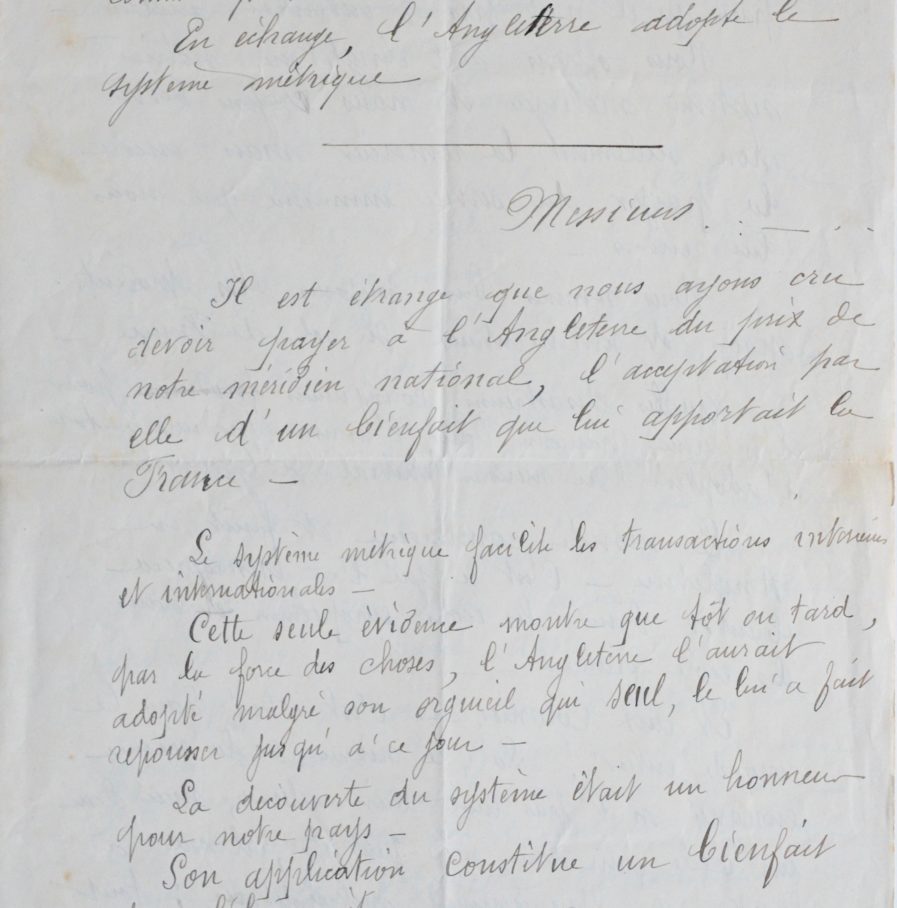 En échange, l'Angleterre adopte le
système métrique
Messieurs . . — . .
Il est étrange que nous ayons cru
devoir payer à l'Angleterre du prix de
notre méridien national, l'acceptation par
elle d'un bienfait que lui apportait la
France —
Le système métrique facilite les transactions intérieures
et internationales —
Cette seule évidence montre que tôt ou tard,
par la force des choses, l'Angleterre l'aurait
adopté malgré son orgueil qui seul, le lui a fait
repousser jusqu'à ce jour —
La découverte du système était un honneur
pour notre pays —
Son application constitue un bienfait